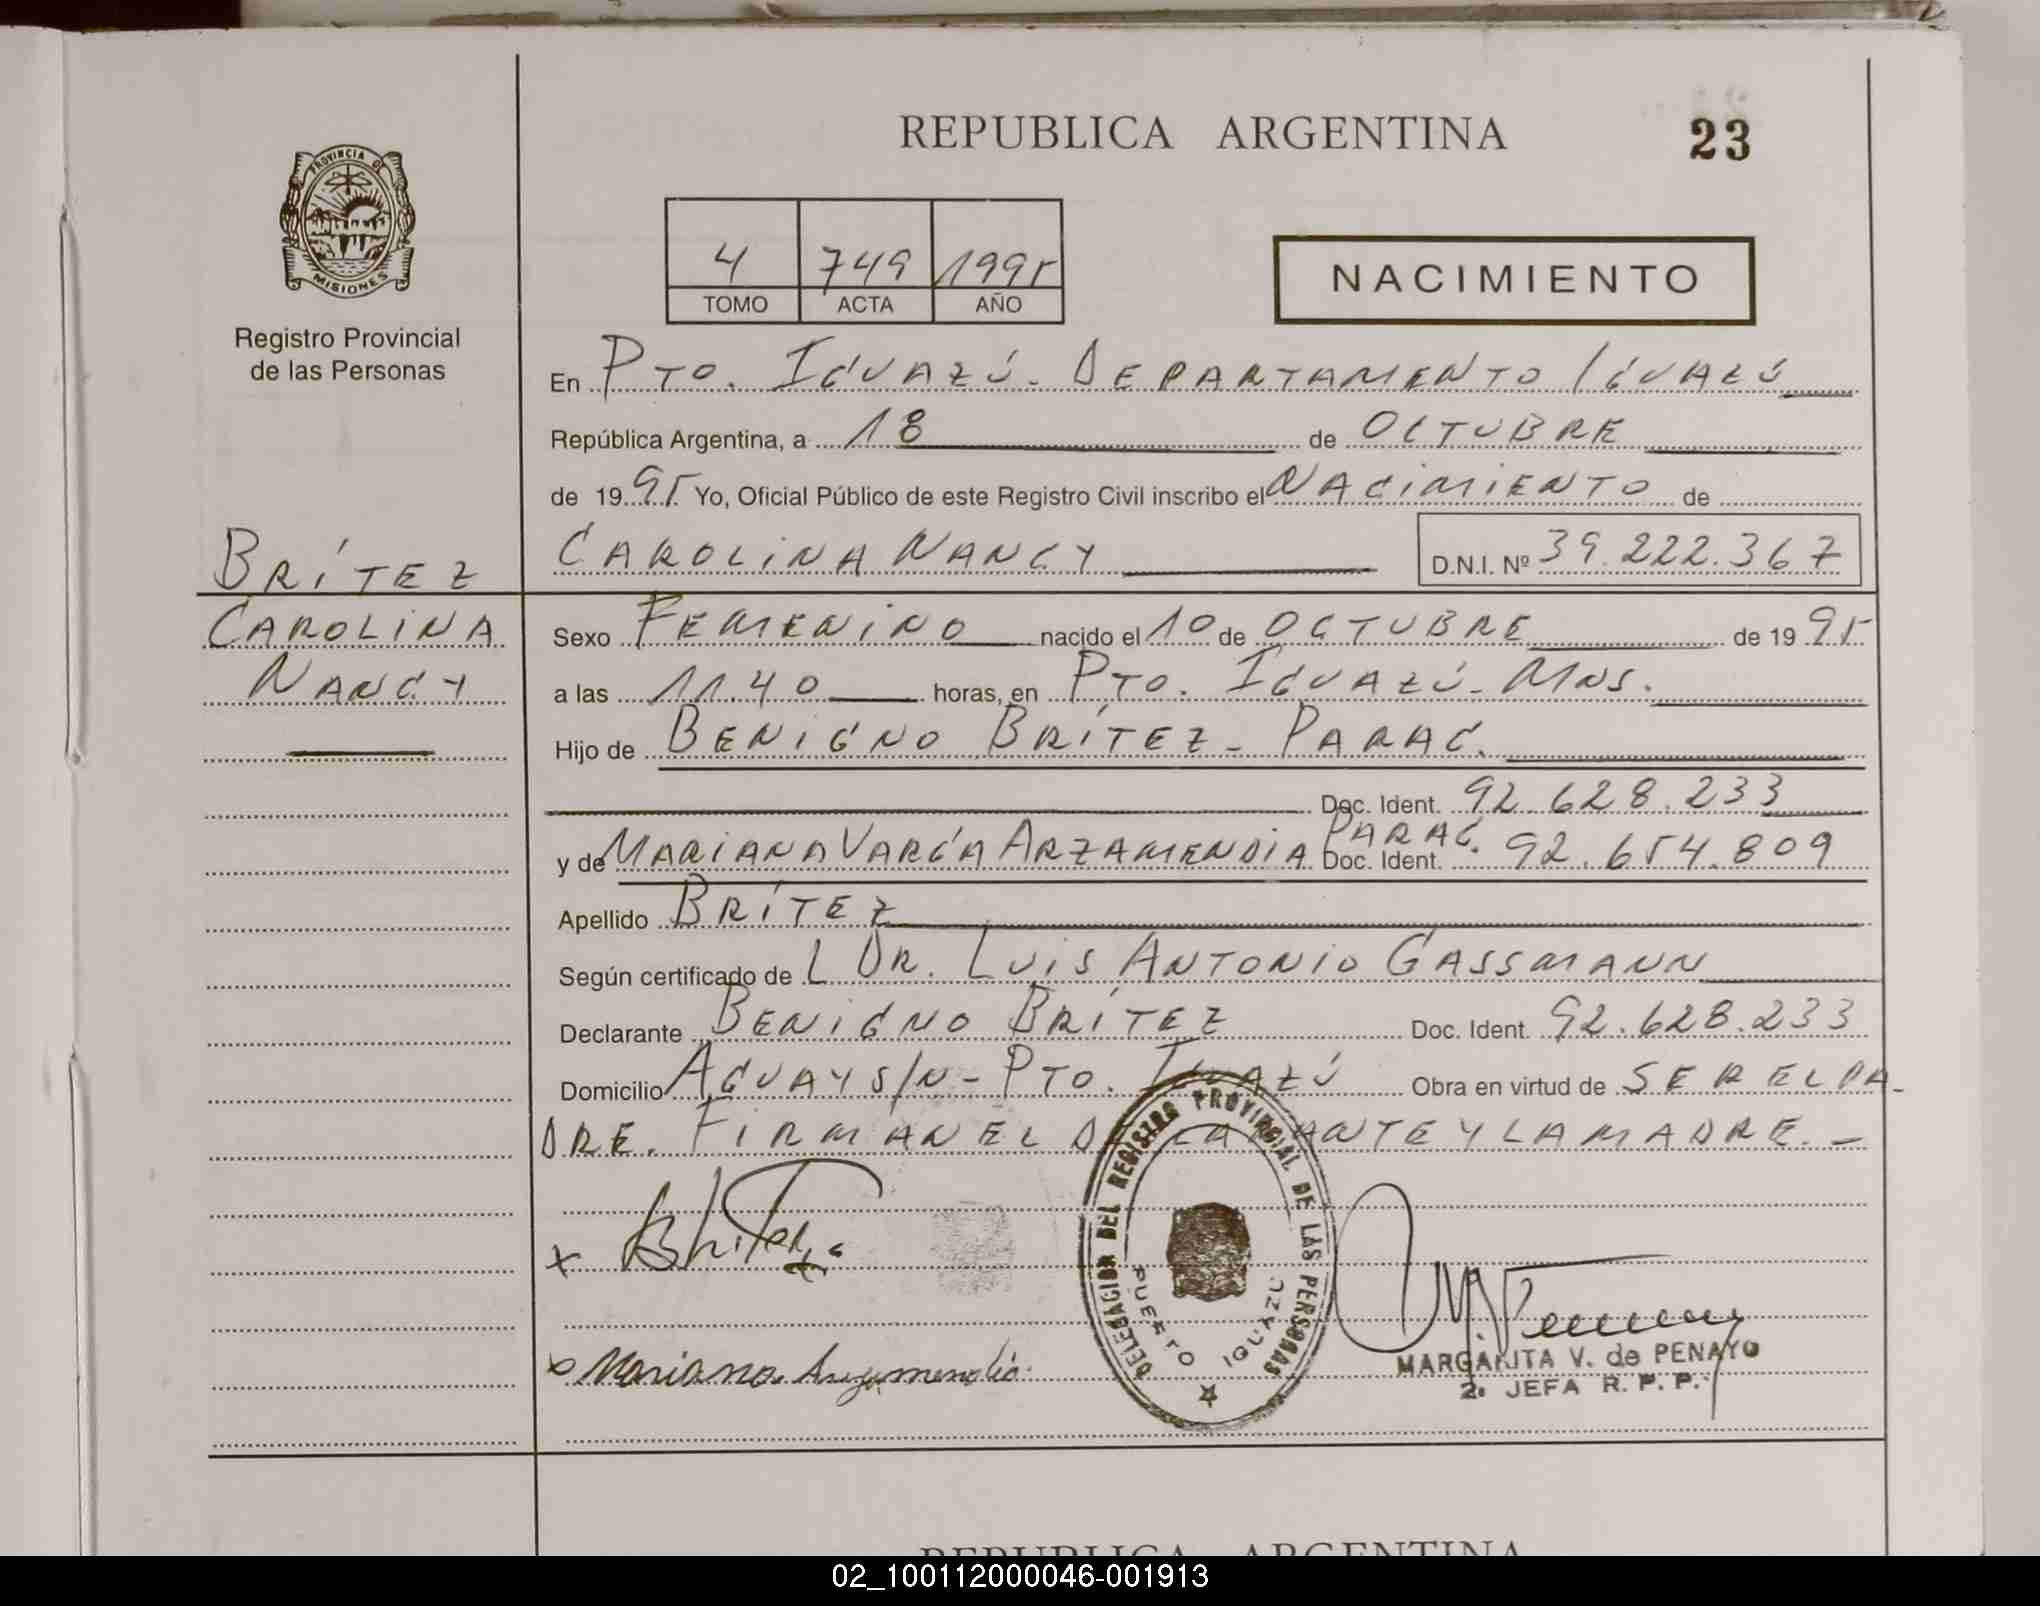 REPUBLICA ARGENTINA
23
PROVINCIA DE
MISIONES
Registro Provincial
de las Personas
4 749 1995
TOMO ACTA AÑO
NACIMIENTO
En PTO. IGUAZÚ. DEPARTAMENTO IGUAZÚ
República Argentina, a 18 de OCTUBRE
de 1995 Yo, Oficial Público de este Registro Civil inscribo el NACIMIENTO de
CAROLINA NANCY
D.N.I. Nº 39.222.367
BRÍTEZ
CAROLINA
NANCY
Sexo FEMENINO nacido el 10 de OCTUBRE de 1995
a las 11.40 horas, en PTO. IGUAZÚ - MNS.
Hijo de BENIGNO BRÍTEZ - PARAG.
Doc. Ident. 92.628.233
y de MARIANA VARGA ARZAMENDIA PARAG. Doc. Ident. 92.654.809
Apellido BRÍTEZ
Según certificado de L DR. LUIS ANTONIO GASSMANN
Declarante BENIGNO BRÍTEZ Doc. Ident. 92.628.233
Domicilio AGUAY S/N - PTO. IGUAZÚ Obra en virtud de SER EL PA-
DRE. FIRMAN EL DECLARANTE Y LA MADRE. -
DELEGACION DEL REGISTRO PROVINCIAL DE LAS PERSONAS
PUERTO IGUAZU
x Britez
x Mariana Arzamendia
MARGARITA V. de PENAYO
2a JEFA R. P. P.
REPUBLICA ARGENTINA
02_100112000046-001913